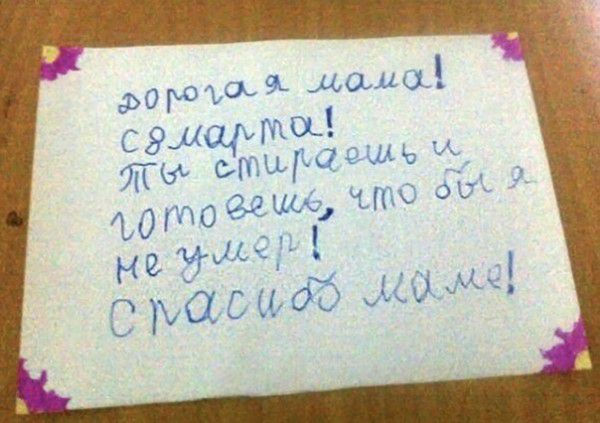 дорогая мама!
с 8 марта!
ты стираешь и
готовешь, что бы я
не умер!
Спасибо маме!